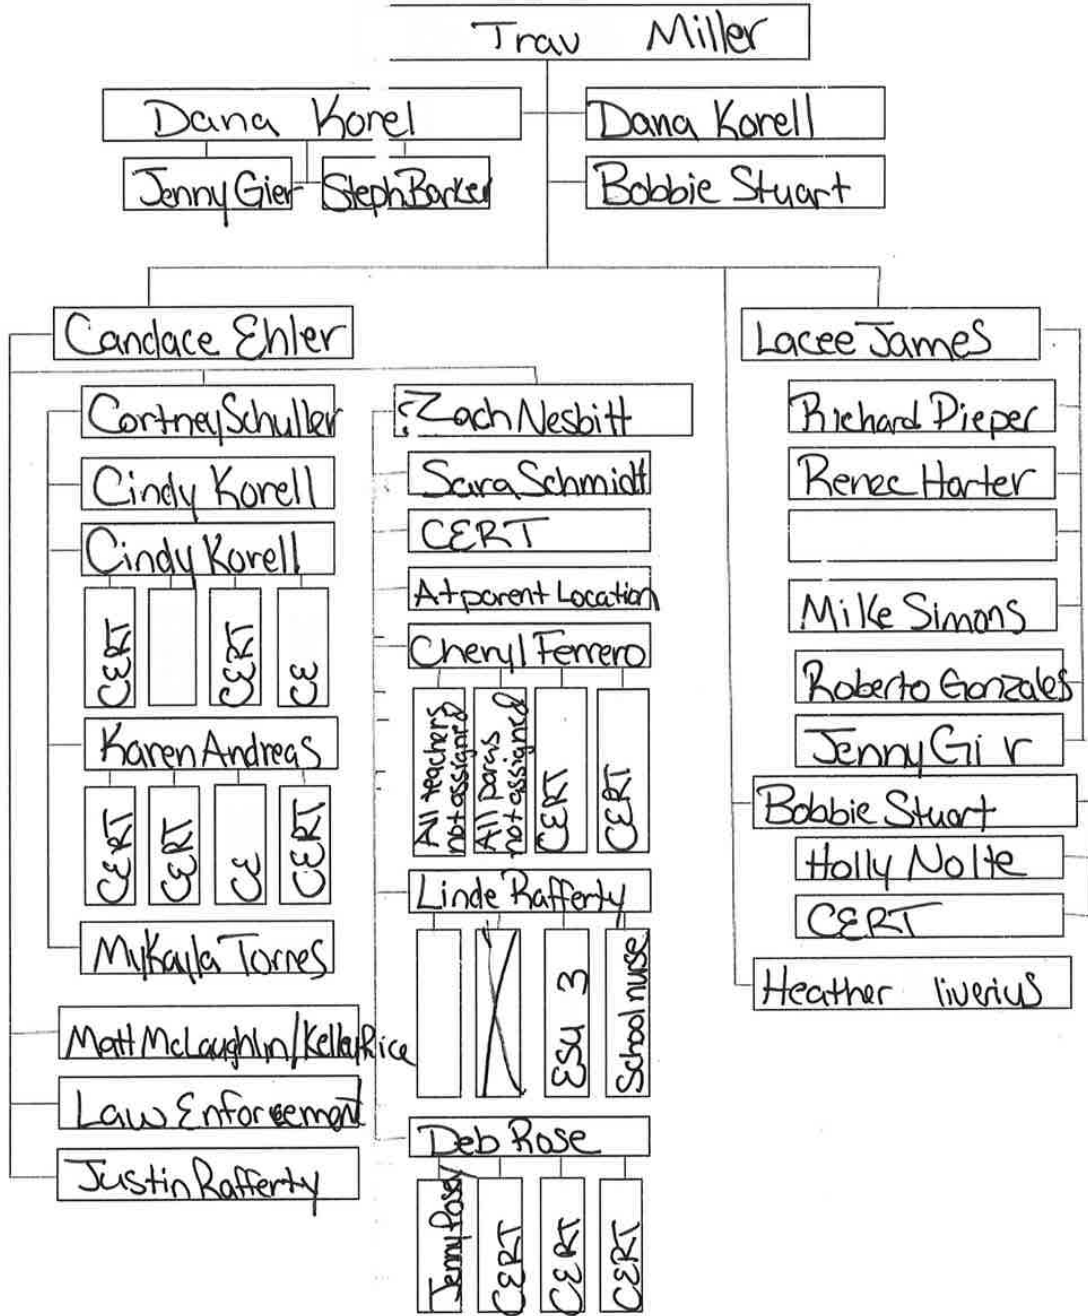 Trav Miller
Dana Korel
Dana Korell
Jenny Gier
Steph Barker
Bobbie Stuart
Candace Ehler
Cortney Schuller
Cindy Korell
Cindy Korell
CERT
CERT
CE
Karen Andreas
CERT
CERT
CE
CERT
Mykayla Torres
Matt McLaughlin/Kelley Rice
Law Enforcement
Justin Rafferty
?Zach Nesbitt
Sara Schmidt
CERT
At parent Location
Cheryl Ferrero
All teachers
not assigned
All paras
not assigned
CERT
CERT
Linde Rafferty
ESU 3
School nurse
Deb Rose
Jenny Posey
CERT
CERT
CERT
Lacee James
Richard Pieper
Renee Harter
Mike Simons
Roberto Gonzales
Jenny Gi r
Bobbie Stuart
Holly Nolte
CERT
Heather liverius